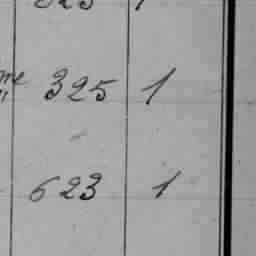 325 1
623 1